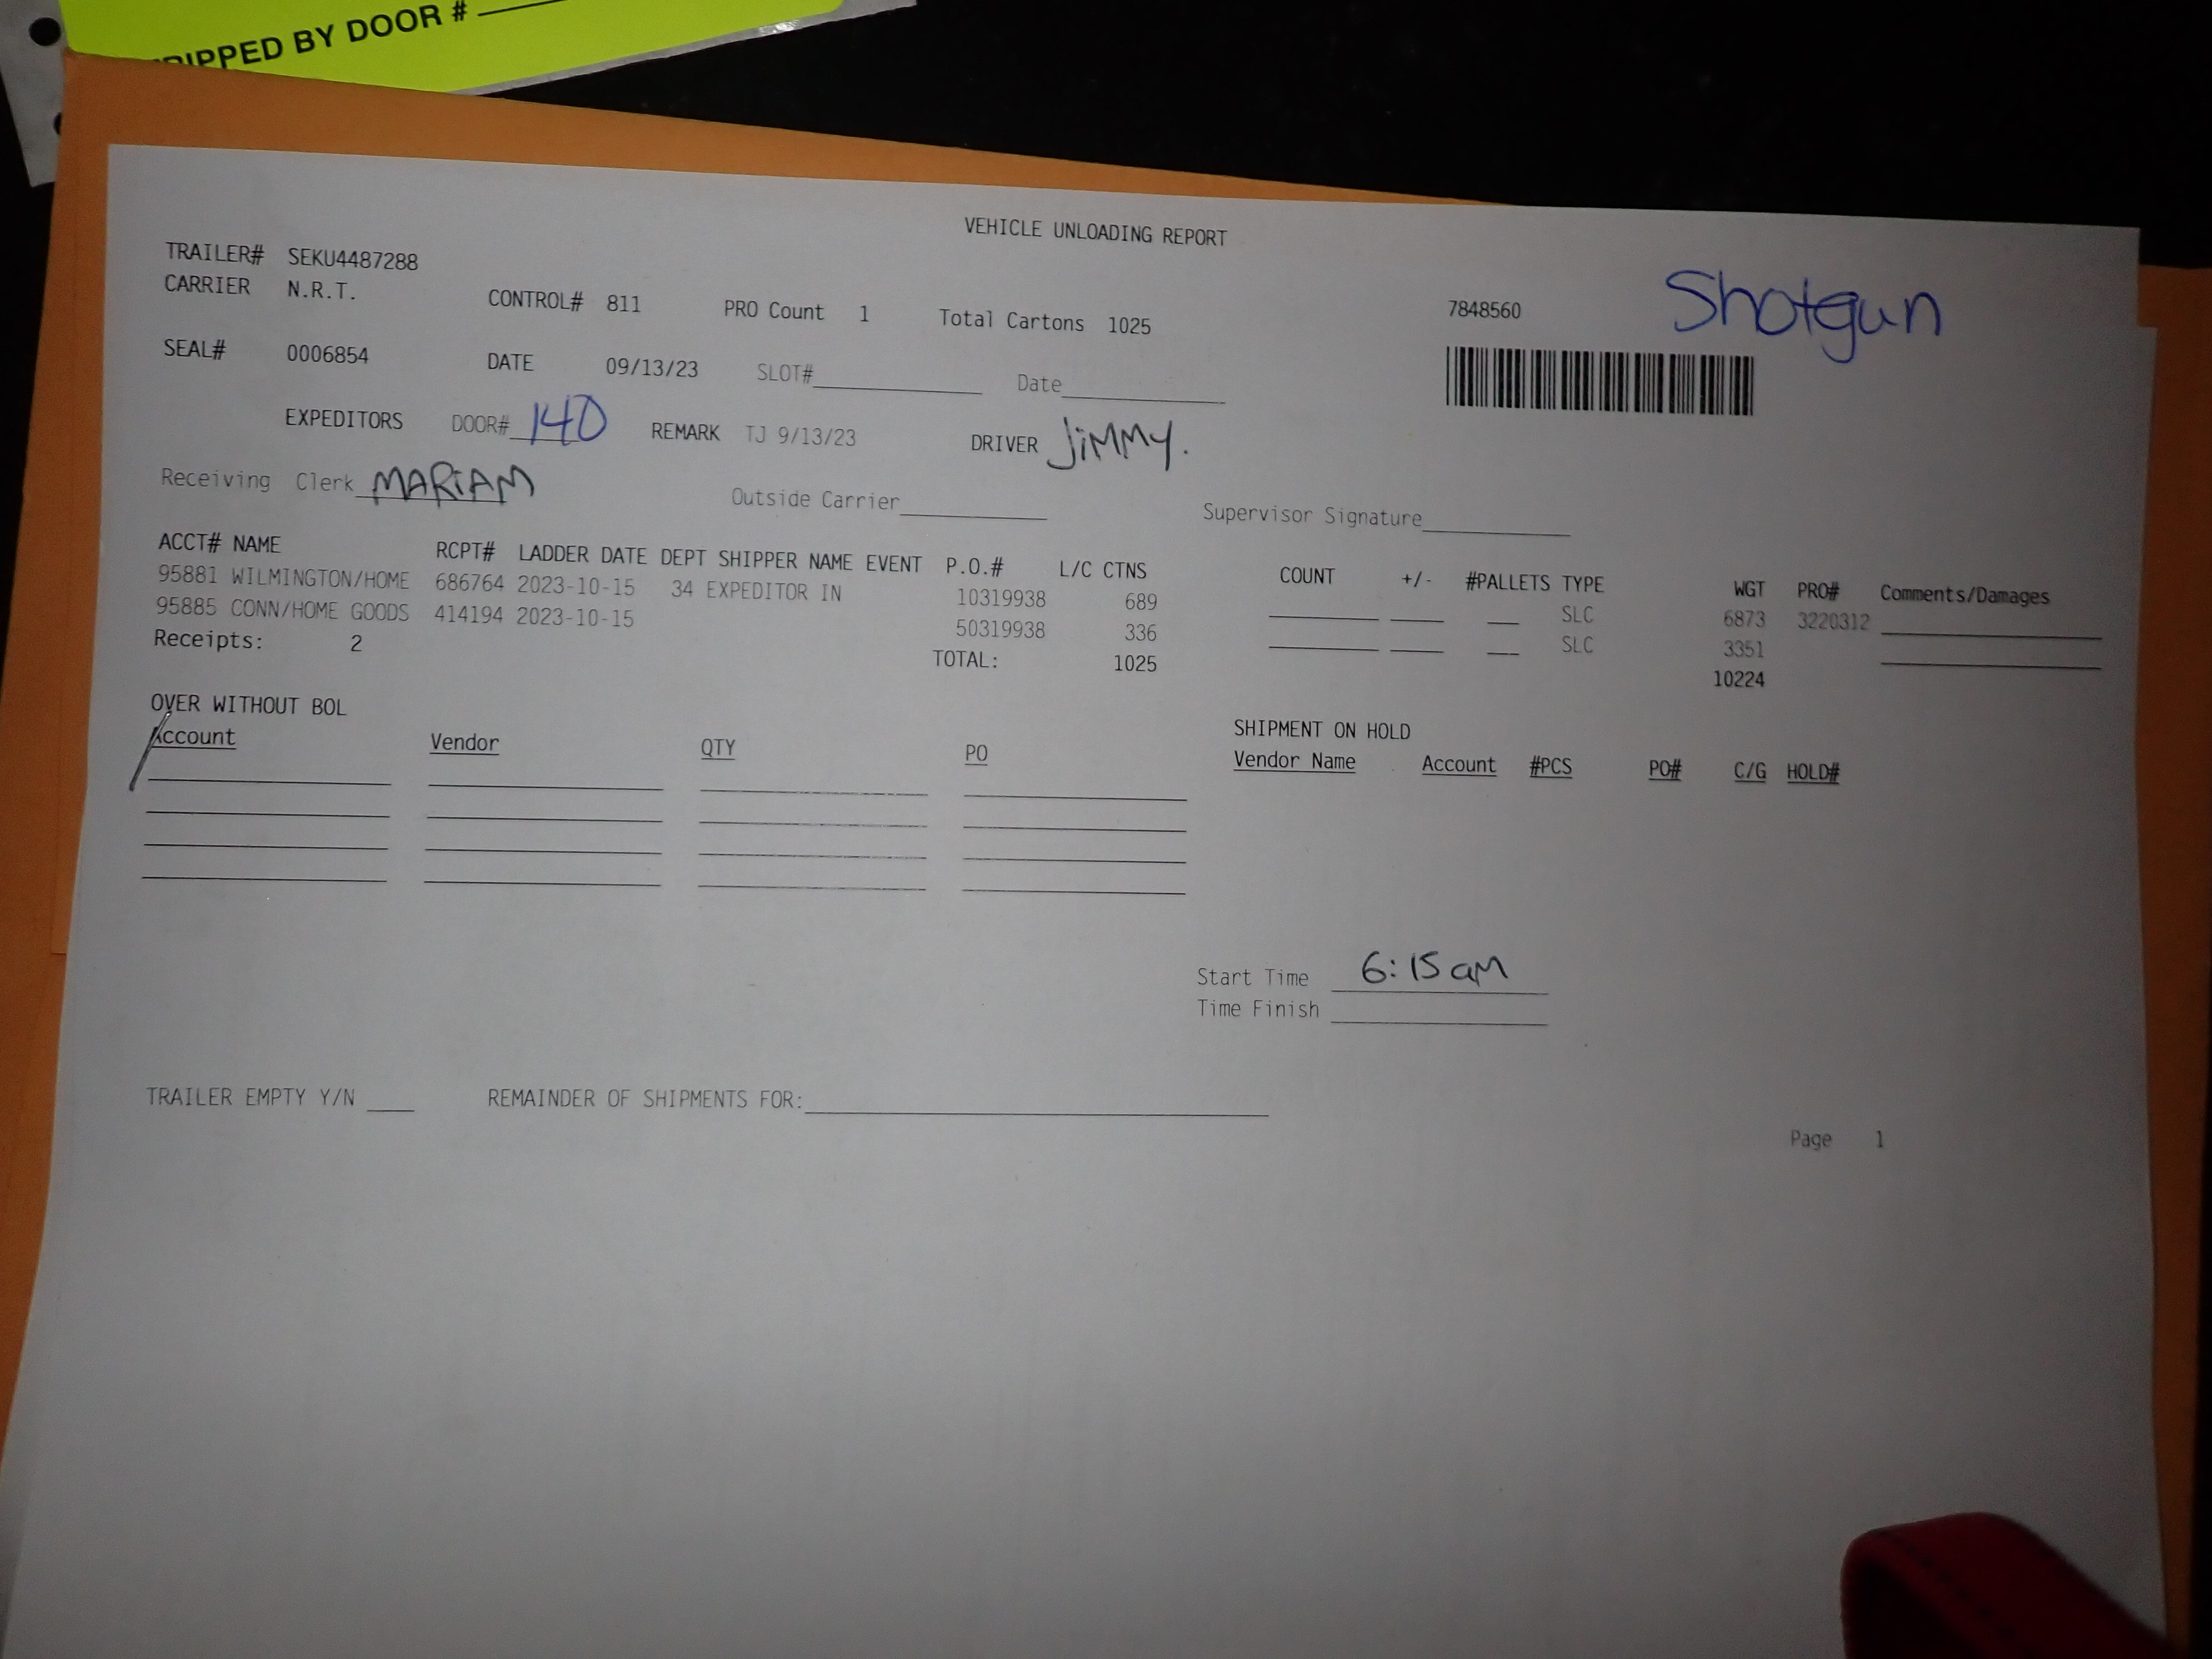 RIPPED BY DOOR #
VEHICLE UNLOADING REPORT
Shotgun
TRAILER# SEKU4487288
CARRIER N.R.T. CONTROL# 811 PRO Count 1 Total Cartons 1025 7848560
SEAL# 0006854 DATE 09/13/23 SLOT# Date
EXPEDITORS DOOR# 140 REMARK TJ 9/13/23 DRIVER JiMMY.
Receiving Clerk MARiAM Outside Carrier Supervisor Signature
ACCT# NAME RCPT# LADDER DATE DEPT SHIPPER NAME EVENT P.O.# L/C CTNS COUNT +/- #PALLETS TYPE WGT PRO# Comments/Damages
95881 WILMINGTON/HOME 686764 2023-10-15 34 EXPEDITOR IN 10319938 689 SLC 6873 3220312
95885 CONN/HOME GOODS 414194 2023-10-15 50319938 336 SLC 3351
Receipts: 2 TOTAL: 1025 10224
OVER WITHOUT BOL SHIPMENT ON HOLD
Account Vendor QTY PO Vendor Name Account #PCS PO# C/G HOLD#
Start Time 6:15am
Time Finish
TRAILER EMPTY Y/N REMAINDER OF SHIPMENTS FOR:
Page 1